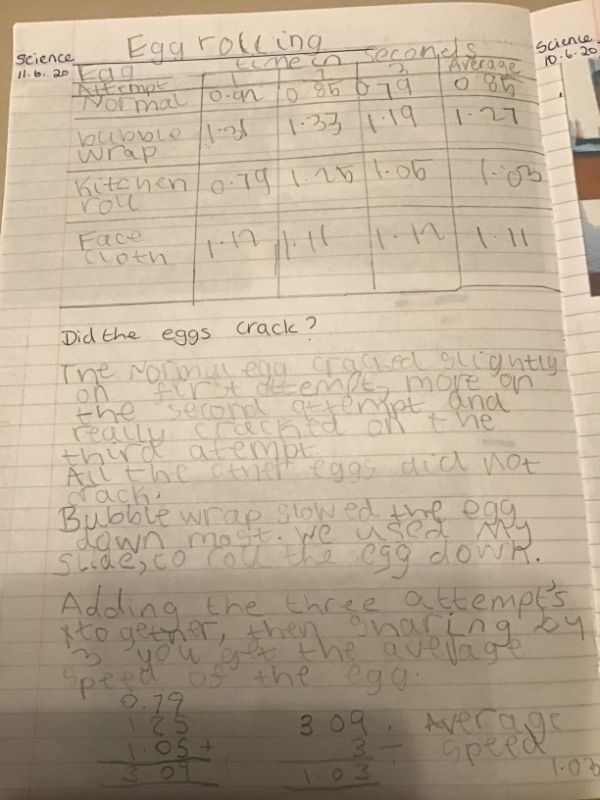 Egg rolling
Science
11.6.20
Science
10.6.20
Egg time in seconds
Attempt 1 2 3 Average
Normal 0.92 0.85 0.79 0.85
bubble wrap 1.31 1.33 1.19 1.27
Kitchen roll 0.79 1.25 1.05 1.03
Face cloth 1.12 1.11 1.12 1.11
Did the eggs crack?
The Normal egg cracked slightly
on first attempt, more on
the second attempt and
really cracked on the
third atempt.
All the other eggs did not
crack.
Bubble wrap slowed the egg
down most. We used My
slide, to roll the egg down.
Adding the three attempt's
together, then sharing by
3 you get the average
speed of the egg.
0.79
1.25
1.05 +
3.09
3.09
3 ÷
1.03
Average
speed
1.03